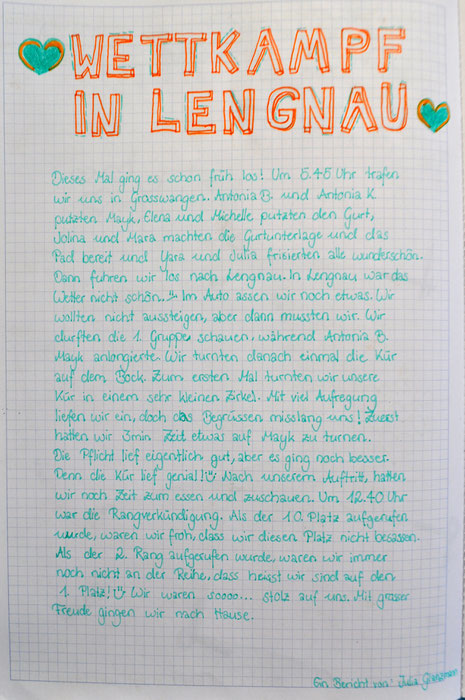 WETTKAMPF
IN LENGNAU
Dieses Mal ging es schon früh los! Um 5.45 Uhr trafen
wir uns in Grosswangen. Antonia B. und Antonia K
putzten Mayk, Elena und Michelle putzten den Gurt,
Jolina und Mara machten die Gurtunterlage und das
Pad bereit und Yara und Julia frisierten alle wunderschön.
Dann fuhren wir los nach Lengnau. In Lengnau war das
Wetter nicht schön. Im Auto assen wir noch etwas. Wir
wollten nicht aussteigen, aber dann mussten wir. Wir
durften die 1. Gruppe schauen, während Antonia B.
Mayk anlongierte. Wir turnten danach einmal die Kür
auf dem Bock. Zum ersten Mal turnten wir unsere
Kür in einem sehr kleinen Zirkel. Mit viel Aufregung
liefen wir ein, doch das Begrüssen misslang uns! Zuerst
hatten wir 3min Zeit etwas auf Mayk zu turnen.
Die Pflicht lief eigentlich gut, aber es ging noch besser.
Denn die Kür lief genial! Nach unserem Auftritt, hatten
wir noch Zeit zum essen und zuschauen. Um 12.40 Uhr
war die Rangverkündigung. Als der 10. Platz aufgerufen
wurde, waren wir froh, dass wir diesen Platz nicht besassen.
Als der 2. Rang aufgerufen wurde, waren wir immer
noch nicht an der Reihe, dass heisst wir sind auf den
1. Platz! Wir waren soooo... stolz auf uns. Mit grosser
Freude gingen wir nach Hause.
Ein Bericht von: Julia